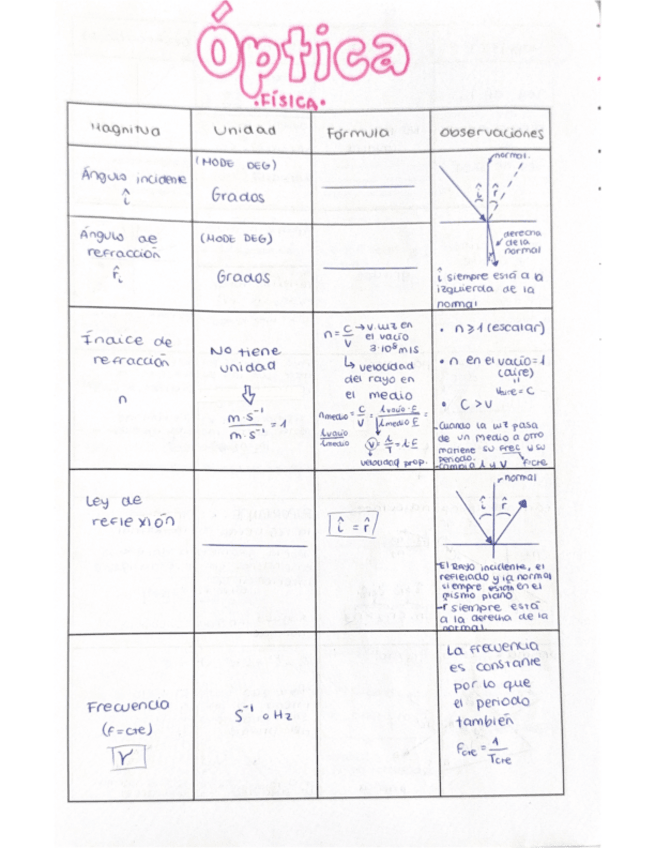 Óptica
.FÍSICA.
Magnitud
Unidad
Fórmula
Observaciones
Ángulo incidente
î
(MODE DEG)
Grados
normal.
î r̂
derecha
de la
normal
î siempre está a la
izquierda de la
normal
Ángulo de
refracción
r̂i
(MODE DEG)
Grados
Índice de
refracción
n
No tiene
unidad
m·s⁻¹ / m·s⁻¹ = 1
n = C/V → v. luz en
el vacío
3·10⁸ m/s
↳ velocidad
del rayo en
el medio
n medio = C/V = λvacío·F / λmedio F =
λvacío / λmedio
V = λ/T = λ·F
velocidad prop.
• n ≥ 1 (escalar)
• n en el vacío = 1
(aire)
• C > V
-Cuando la luz pasa
de un medio a otro
mantiene su frec y su
periodo.
-Cambia λ y V F=cte
Ley de
reflexión
î = r̂
normal
î r̂
-El Rayo incidente, el
reflejado y la normal
siempre están en el
mismo plano
-r siempre está
a la derecha de la
normal.
Frecuencia
(F=cte)
γ
s⁻¹ o Hz
La frecuencia
es constante
por lo que
el periodo
también
Fcte = 1/Tcte